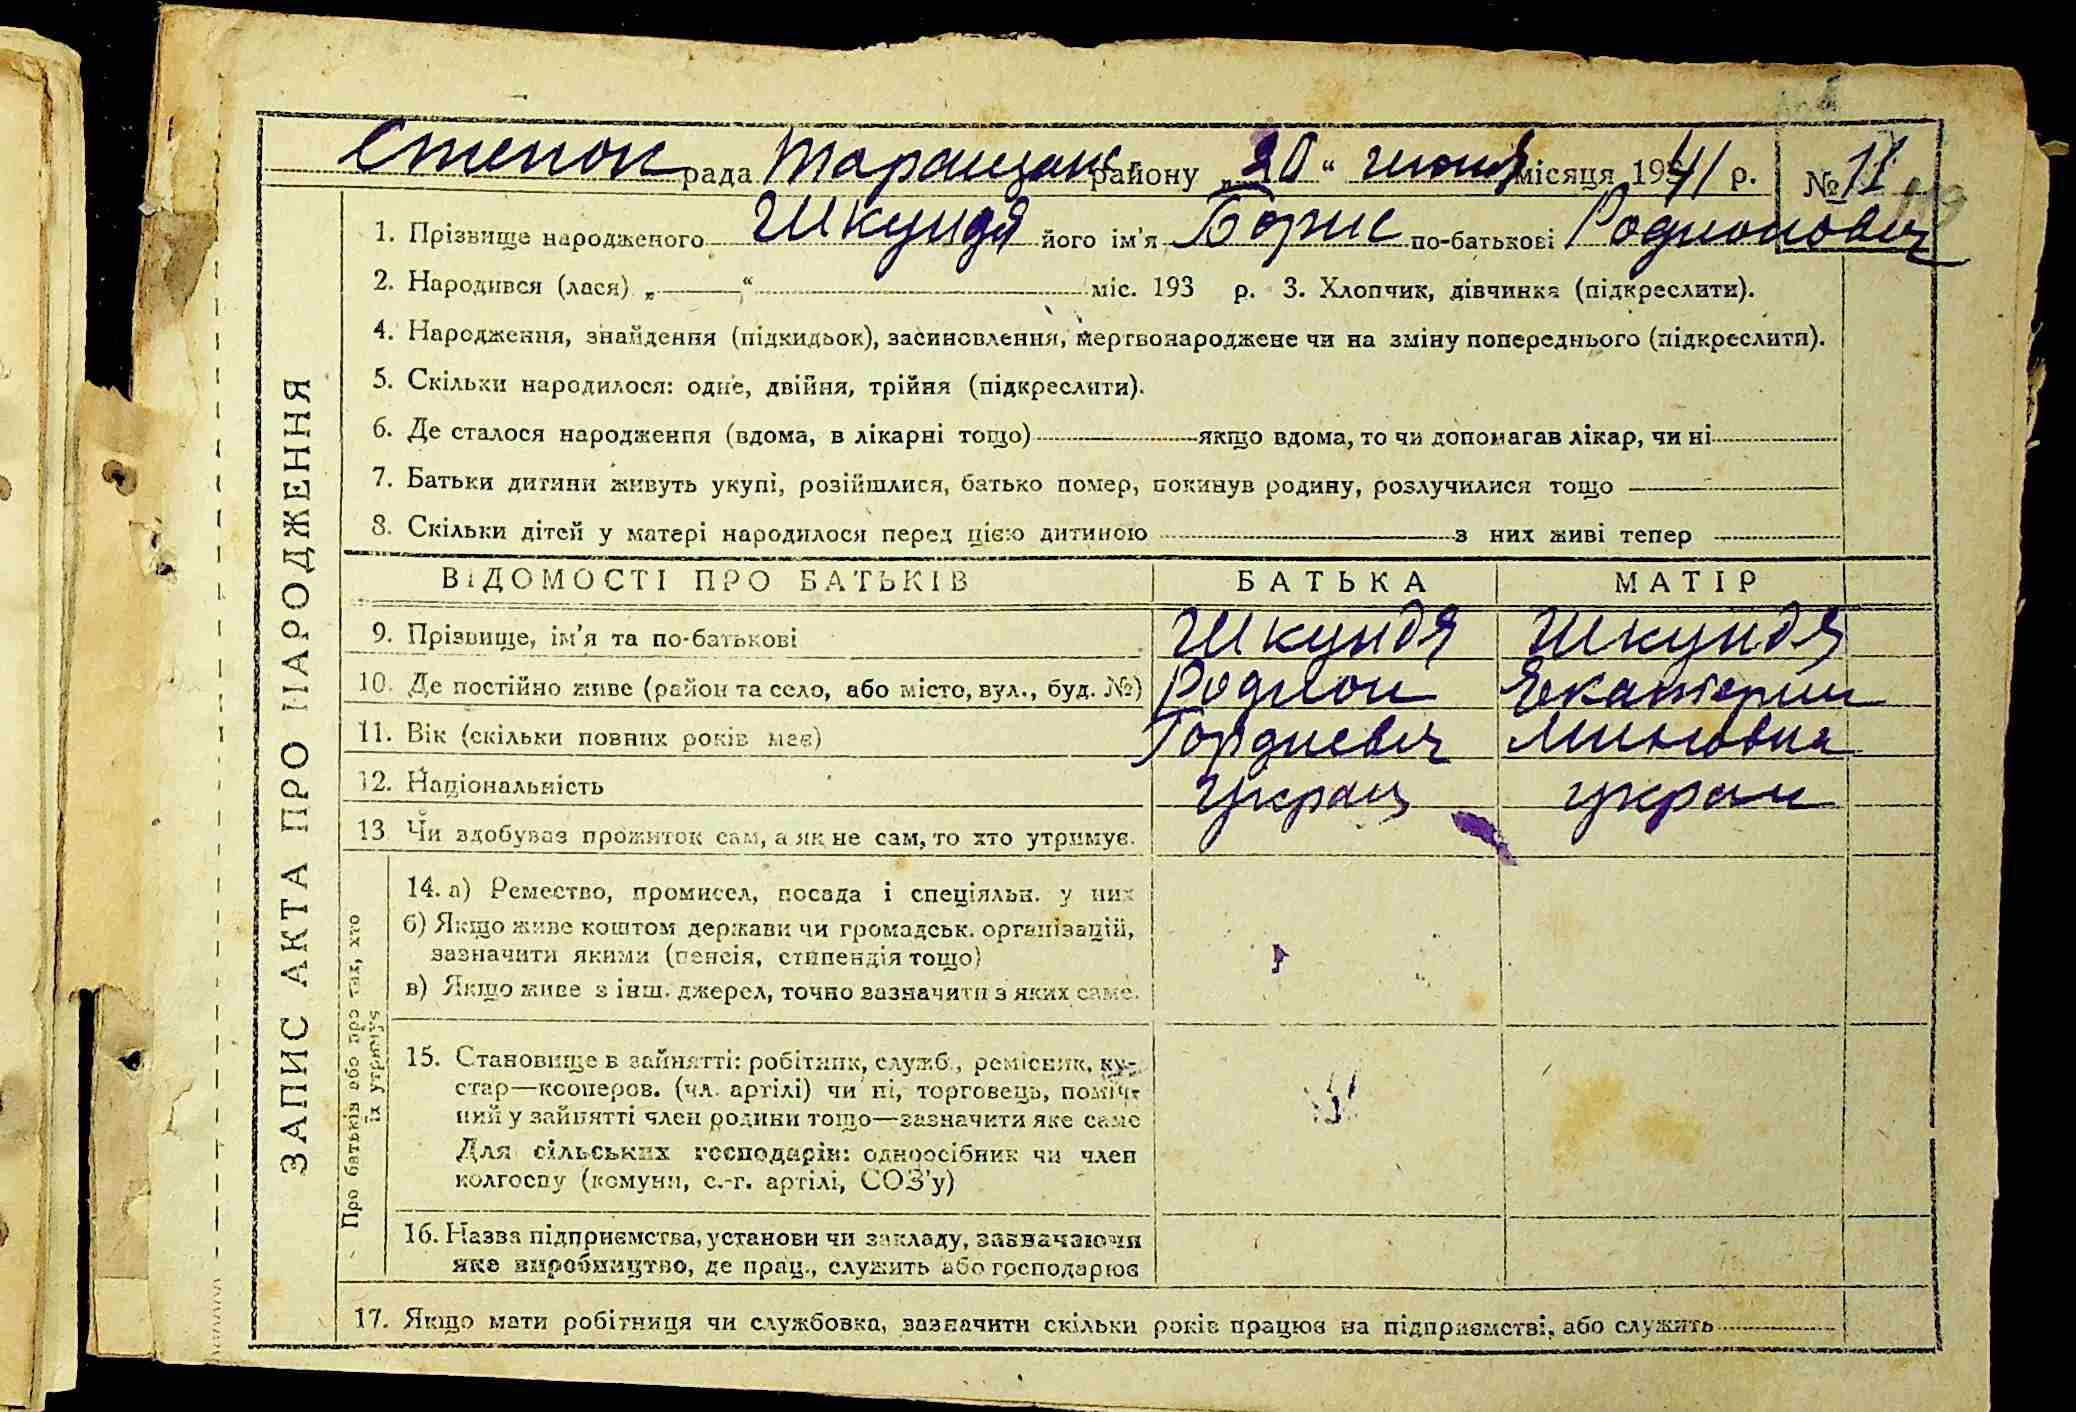 Степок рада Таращанс району „20“ июня місяця 1941 р. № 11
1. Прізвище народженого Шкундя його ім'я Борис по-батькові Родионович
2. Народився (лася) „ “ міс. 193 р. 3. Хлопчик, дівчинка (підкреслити).
4. Народження, знайдення (підкидьок), засиновлення, мертвонароджене чи на зміну попереднього (підкреслити).
5. Скільки народилося: одне, двійня, трійня (підкреслити).
6. Де сталося народження (вдома, в лікарні тощо) якщо вдома, то чи допомагав лікар, чи ні
7. Батьки дитини живуть укупі, розійшлися, батько помер, покинув родину, розлучилися тощо
8. Скільки дітей у матері народилося перед цією дитиною з них живі тепер
ЗАПИС АКТА ПРО НАРОДЖЕННЯ
ВІДОМОСТІ ПРО БАТЬКІВ БАТЬКА МАТІР
9. Прізвище, ім'я та по-батькові Шкундя Шкундя
10. Де постійно живе (район та село, або місто, вул., буд. №) Родион Екатерин
11. Вік (скільки повних років має) Гордиевич
12. Національність украц украи
13. Чи здобуває прожиток сам, а як не сам, то хто утримує.
Про батьків або про тих, хто
їх утримує
14. а) Ремество, промисел, посада і спеціяльн. у них
б) Якщо живе коштом держави чи громадськ. організацій,
зазначити якими (пенсія, стипендія тощо)
в) Якщо живе з інш. джерел, точно зазначити з яких саме.
15. Становище в зайнятті: робітник, служб., ремісник, ку-
стар—кооперов. (чл. артілі) чи ні, торговець, поміч-
ний у зайнятті член родини тощо—зазначити яке саме
Для сільських господарів: одноосібник чи член
колгоспу (комуни, с.-г. артілі, СОЗ'у)
16. Назва підприємства, установи чи закладу, зазначаючи
яке виробництво, де прац., служить або господарює
17. Якщо мати робітниця чи службовка, зазначити скільки років працює на підприємстві, або служить